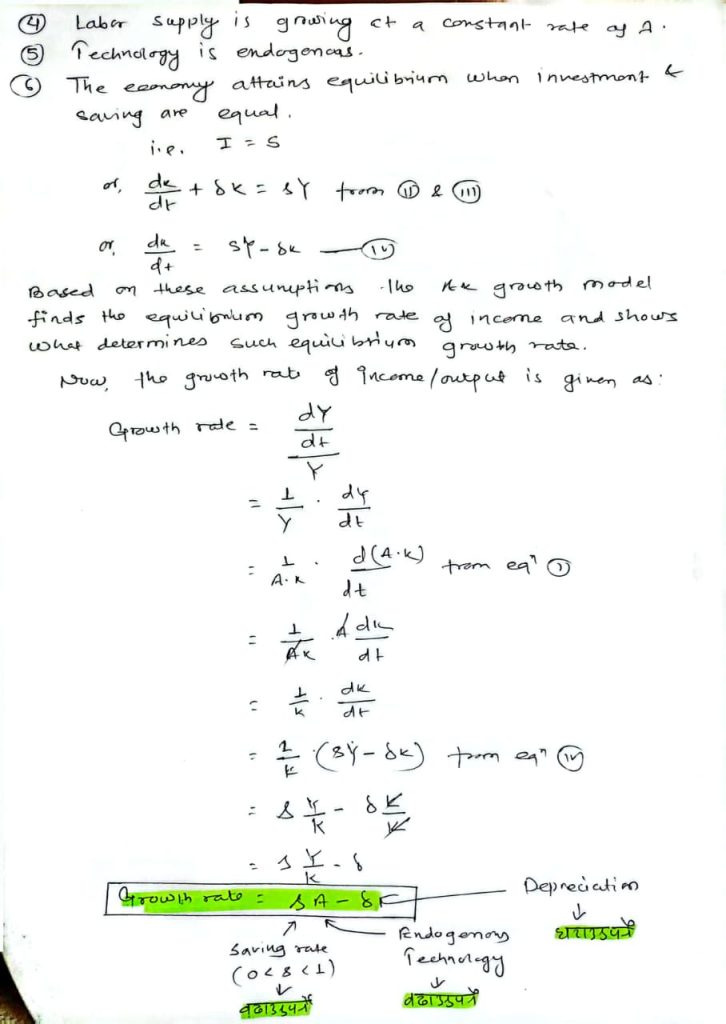 ④ Labor supply is growing at a constant rate of A.
⑤ Technology is endogenous.
⑥ The economy attains equilibrium when investment &
saving are equal.
i.e. I = S
or, dk/dt + δK = sY from (ii) & (iii)
or, dk/dt = sY - δk — (iv)
Based on these assumptions the AK growth model
finds the equilibrium growth rate of income and shows
what determines such equilibrium growth rate.
Now, the growth rate of income/output is given as:
Growth rate = (dY/dt)/Y
= 1/Y · dY/dt
= 1/A.K · d(A.K)/dt from eqⁿ (i)
= 1/AK · A dk/dt
= 1/k · dk/dt
= 1/k · (sY - δk) from eqⁿ (iv)
= s Y/K - δ K/K
= s Y/K - δ
Growth rate = sA - δ
Depreciation
↓
घटाउनुपर्ने
Saving rate
(0 < s < 1)
↓
बढाउनुपर्ने
Endogenous
Technology
↓
बढाउनुपर्ने